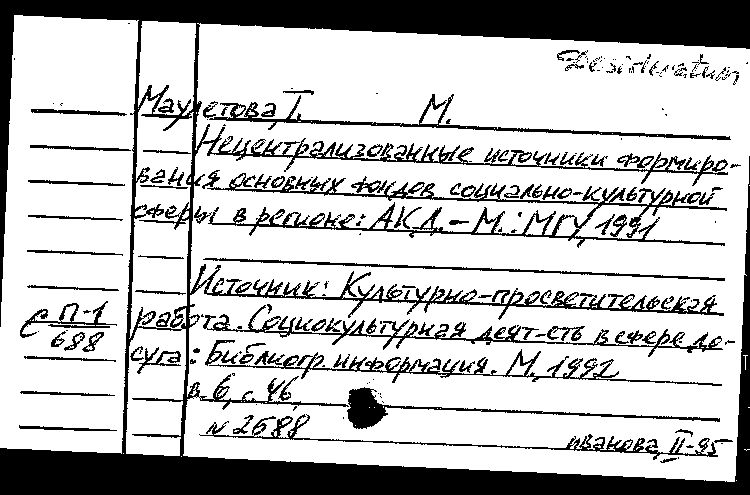 Desideratum
Маулетова, Т. М.
Нецентрализованные источники формиро-
вания основных фондов социально-культурной
сферы в регионе: АКД. – М.: МГУ, 1991
Источник: Культурно-просветительская
е П-1/688 работа. Социокультурная деят-сть в сфере до-
суга: Библиогр. информация. М., 1992
в. 6, с. 46.
N 2688
иванова, II-95